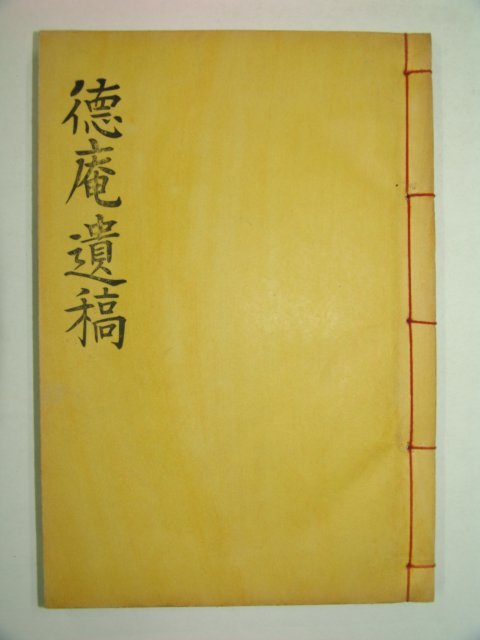 德庵遺稿